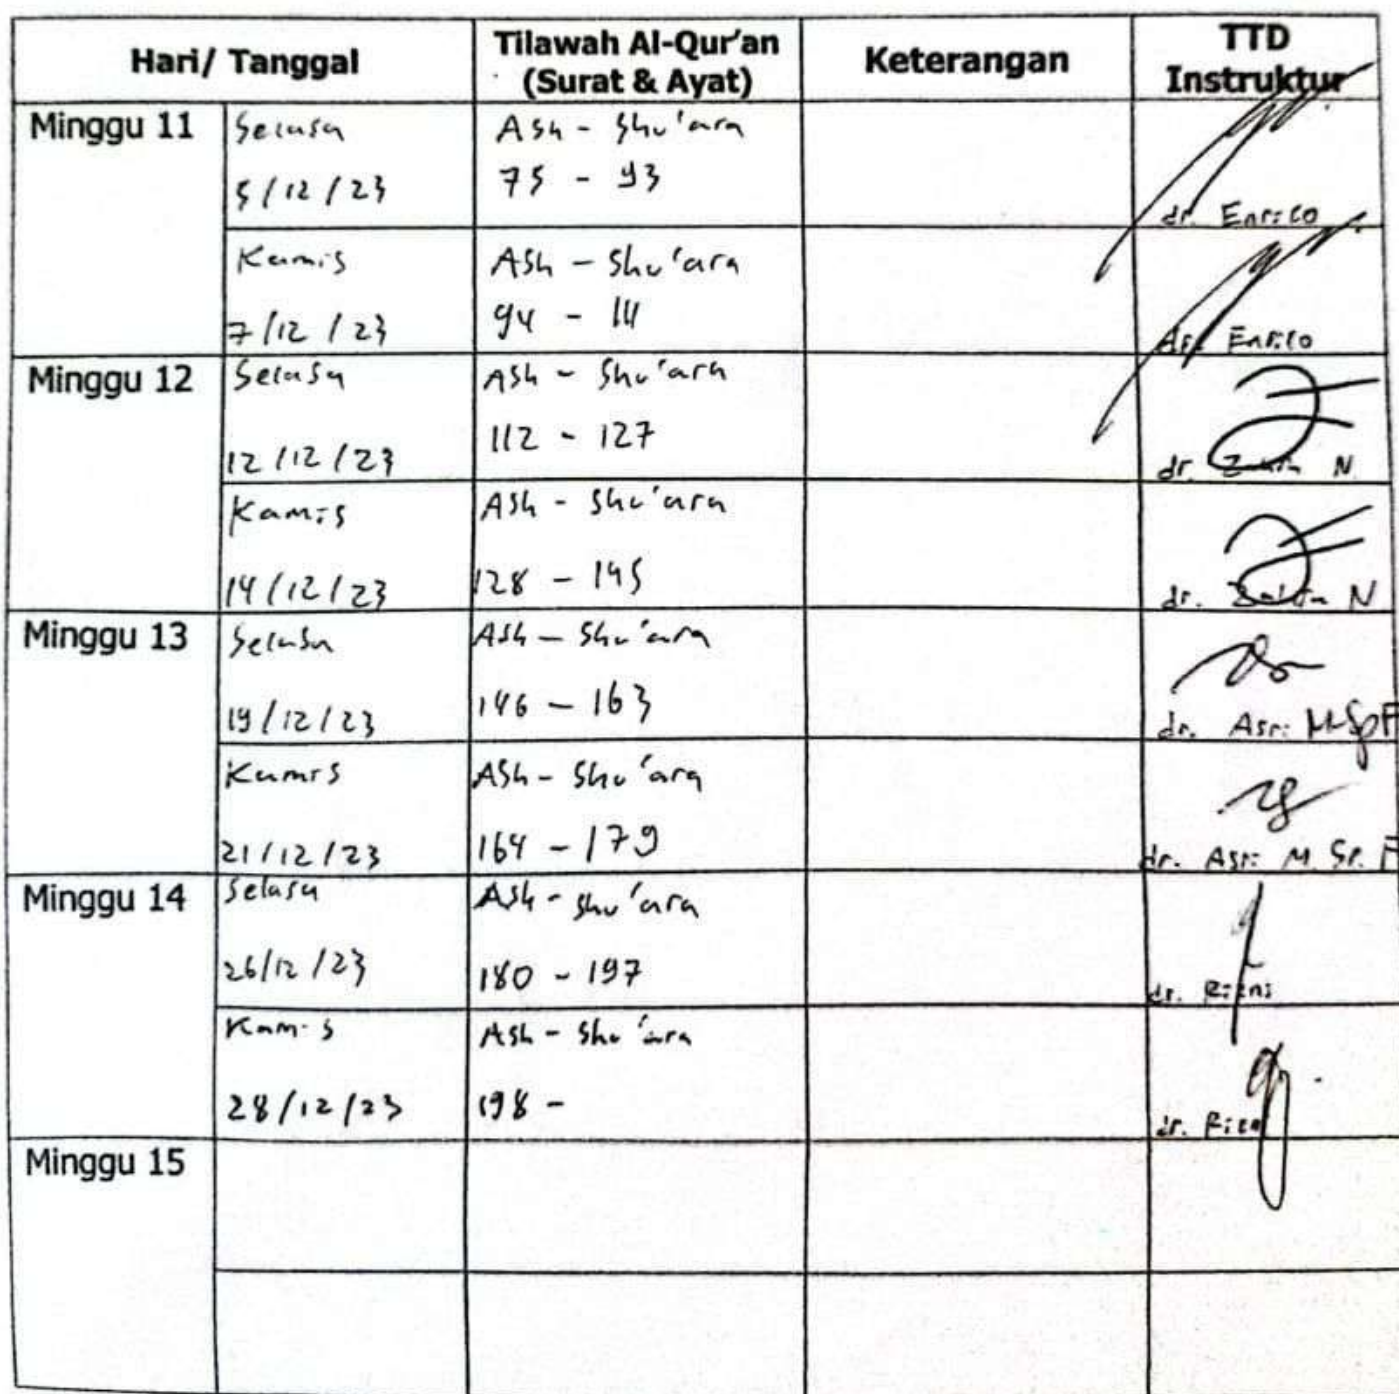 Hari/ Tanggal
Tilawah Al-Qur'an
(Surat & Ayat)
Keterangan
TTD
Instruktur
Minggu 11
Selasa
5/12/23
Ash - Shu'ara
75 - 93
dr. Enrico
Kamis
7/12/23
Ash - Shu'ara
94 - 111
dr. Enrico
Minggu 12
Selasa
12/12/23
Ash - Shu'ara
112 - 127
dr. N
Kamis
14/12/23
Ash - Shu'ara
128 - 145
dr. N
Minggu 13
Selasa
19/12/23
Ash - Shu'ara
146 - 163
dr. Asri M SpF
Kamis
21/12/23
Ash - Shu'ara
164 - 179
dr. Asri M. Sp. F
Minggu 14
Selasa
26/12/23
Ash - Shu'ara
180 - 197
dr.
Kamis
28/12/23
Ash - Shu'ara
198 -
dr.
Minggu 15